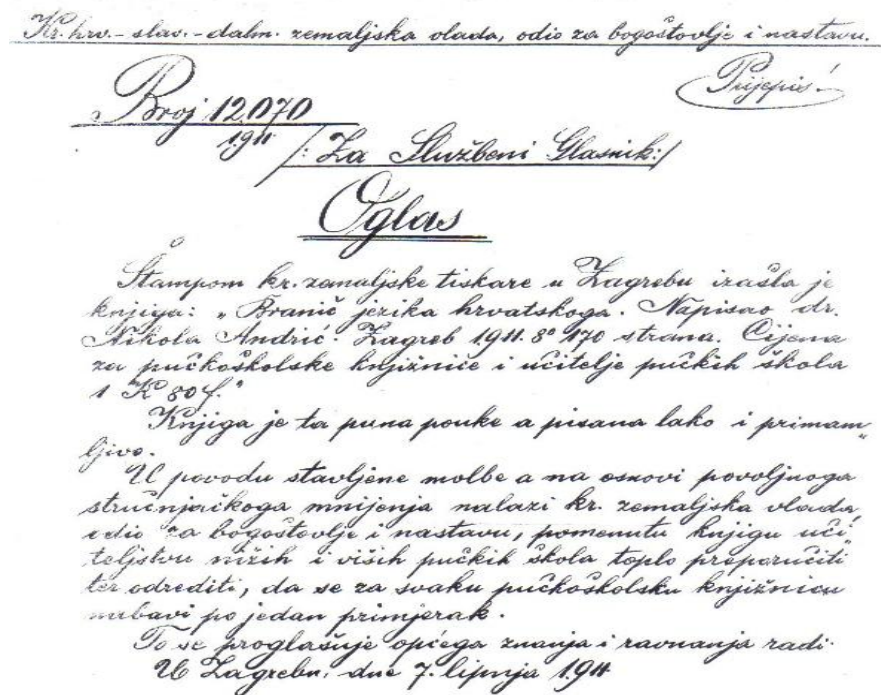 Kr. hrv.-slav.-dalm. zemaljska vlada, odio za bogoštovlje i nastavu.
Prijepis!
Broj 12070
1911
/: Za Službeni Glasnik:/
Oglas
Štampom kr. zemaljske tiskare u Zagrebu izašla je
knjiga: „Branič jezika hrvatskoga. Napisao dr.
Nikola Andrić. Zagreb 1911. 8° 170 strana. Cijena
za pučkoškolske knjižnice i učitelje pučkih škola
1 K 80 f."
Knjiga je ta puna pouke a pisana lako i primam„
ljivo.
U povodu stavljene molbe a na osnovi povoljnoga
stručnjačkoga mnijenja nalazi kr. zemaljska vlada,
odio za bogoštovlje i nastavu, pomenutu knjigu uči„
teljstvu nižih i viših pučkih škola toplo preporučiti
ter odrediti, da se za svaku pučkoškolsku knjižnicu
nabavi po jedan primjerak.
To se proglašuje općega znanja i ravnanja radi.
U Zagrebu, dne 7. lipnja 1911